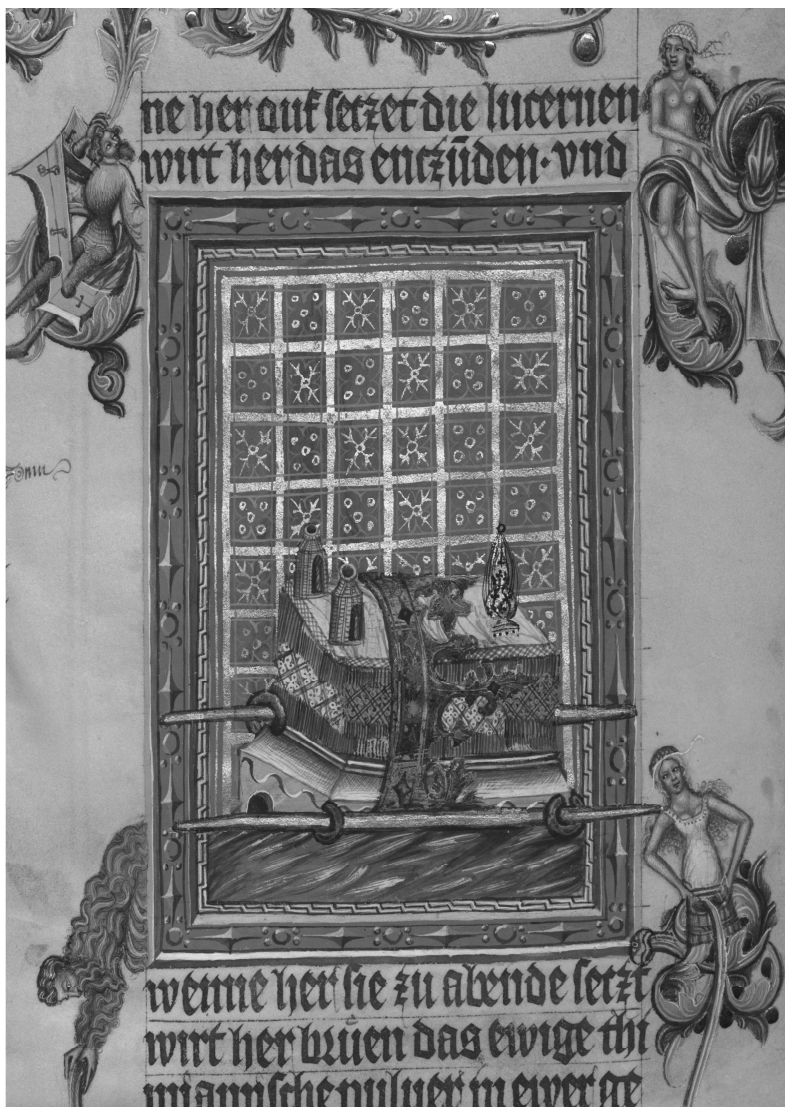 ne her auf seczet die lucernen
wirt her das enczūden · vnd
wenne her sie zu abende seczt
wirt her brūen das ewige thi
miannsche puluer in ewer ge